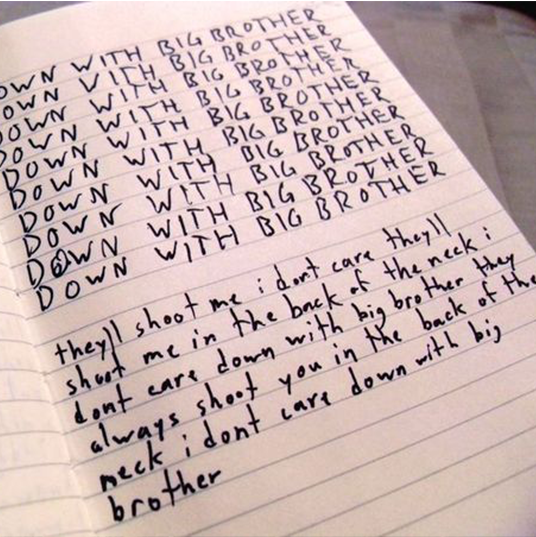 OWN WITH BIG BROTHER
OWN WITH BIG BROTHER
DOWN WITH BIG BROTHER
DOWN WITH BIG BROTHER
DOWN WITH BIG BROTHER
DOWN WITH BIG BROTHER
DOWN WITH BIG BROTHER
DOWN WITH BIG BROTHER
DOWN WITH BIG BROTHER
they'll shoot me i dont care they'll
shoot me in the back of the neck i
dont care down with big brother they
always shoot you in the back of the
neck i dont care down with big
brother